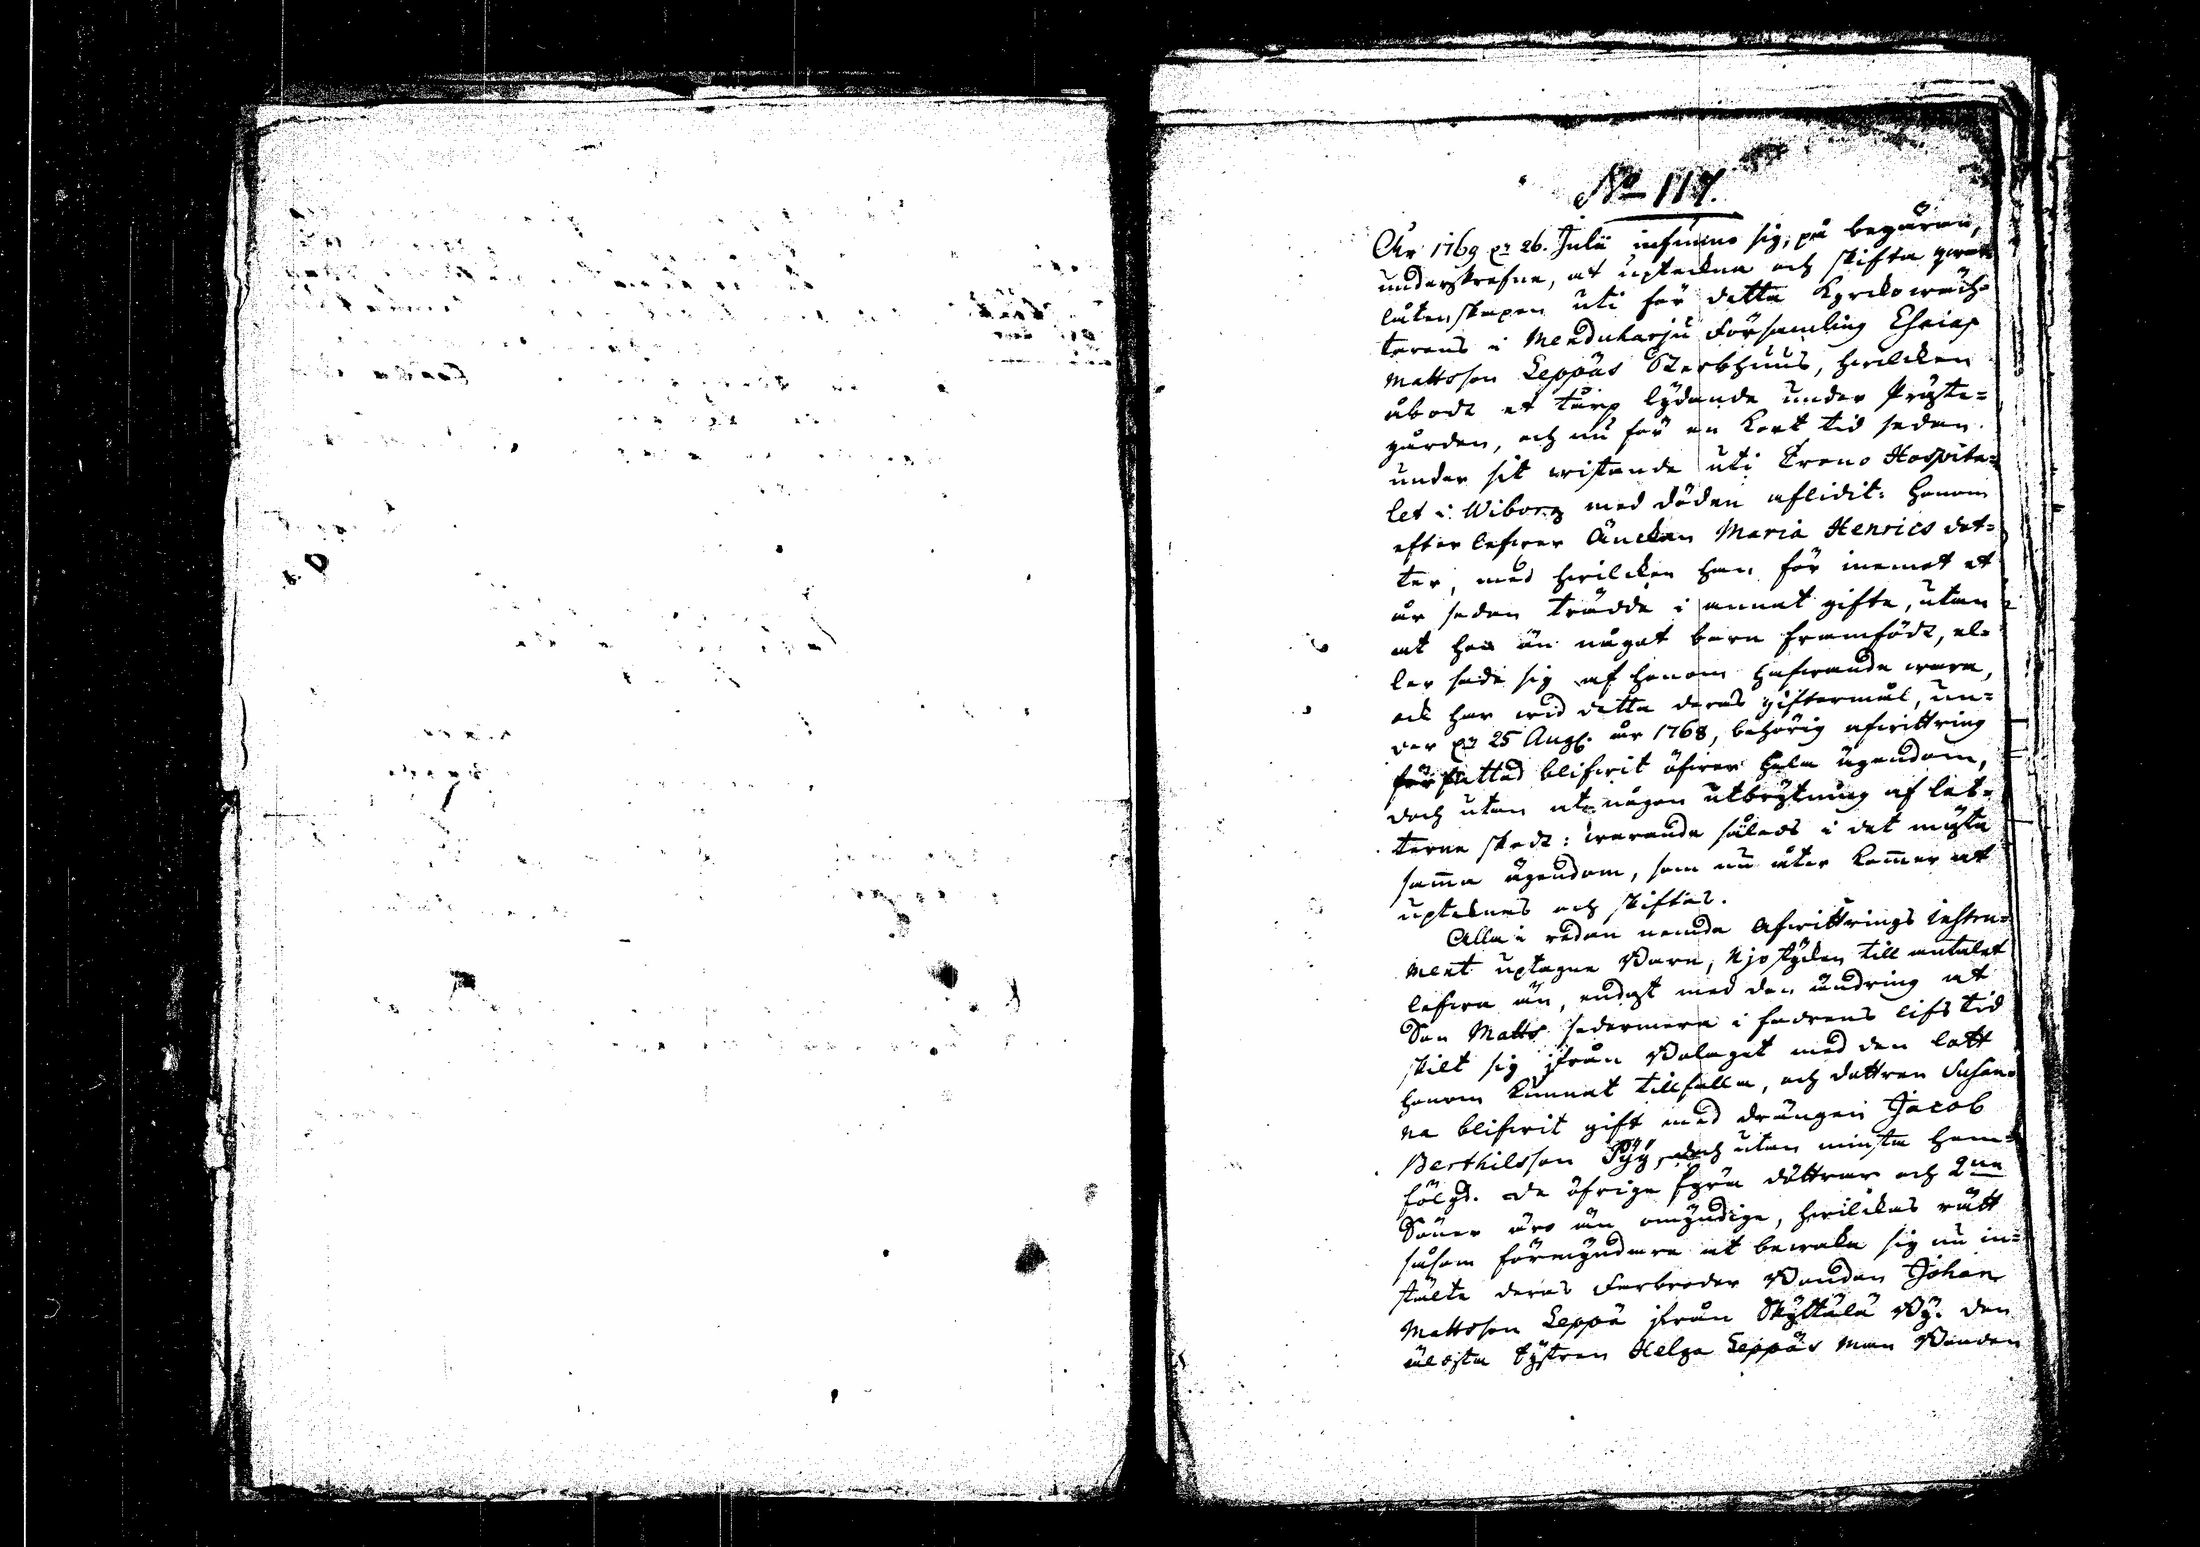 No 117.
År 1769 d. 26. Julii infunno sig, på begäran,
underskrefne, at upteckna och skifta qwar¬
låtenskapen uti för detta Kyrckowäch¬
terens i Menduharju Församling Esaias
Mattsson Leppäs Sterbhuus, hwilcken
åbodt et torp lydande under Präste¬
gården, och nu för en kort tid sedan
under sit wistande uti Crono Hospita¬
let i Wiborg med döden aflidit: honom
efterlefwer Änckan Maria Henrics dot¬
ter, med hwilcken han för inemot et
år sedan trädde i annat gifte, utan
at hon än något barn framfödt, el¬
ler sade sig af honom hafwande wara,
ock har wid detta deras giftermål, un¬
der d. 25 Aug. år 1768, behörig afwittring
författad blifwit öfwer hela ägendom,
doch utan at någon utbrytning af lot¬
terne skedt: warande således i det mästa
samma ägendom, som nu åter kommer at
uptecknas och skiftas.
Alla i redan nemda Afwittrings instru¬
ment uptagne Barn, Nijo stycken till antalet
lefwa än, endast med den ändring at
Son Matts sedermera i fadrens lifs tid
skilt sig ifrån Bolaget med den lott
honom kunnat tillfalla, och dottren Susan¬
na blifwit gift med drängen Jacob
Berthilsson Pyy, doch utan minsta hem¬
fölgd. De öfrige fyra döttrar och 2ne
Söner äro än omyndige, hwilckas rätt
såsom förmyndare at bewaka sig nu in¬
stälte deras Farbroder Bonden Johan
Mattsson Leppä ifrån Skyttälä By. den
äldsta Systren Helga Leppäs man Bonden